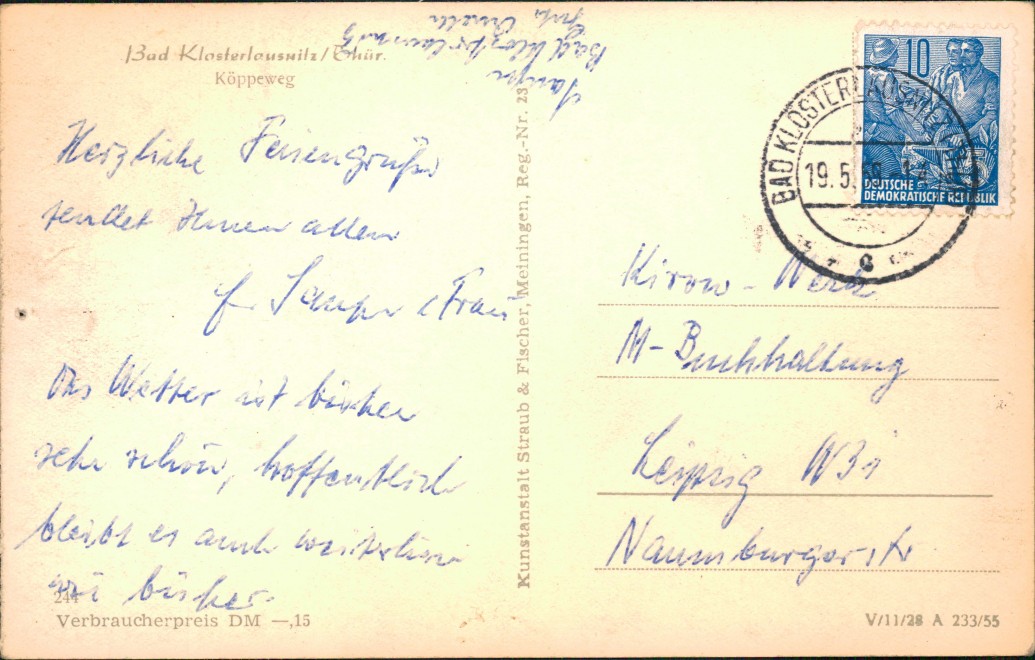 Bad Klosterlausnitz/Thür.
Köppeweg
Bad Klosterlausnitz
Herzliche Feriengrüße
sendet Ihnen allen
Frau
Das Wetter ist bisher
sehr schön, hoffentlich
bleibt es auch weiterhin
wie bisher.
244
Verbraucherpreis DM —,15
Kunstanstalt Straub & Fischer, Meiningen, Reg.-Nr. 23
10
DEUTSCHE
DEMOKRATISCHE REPUBLIK
BAD KLOSTERLAUSNITZ
19.5.
Kirow-Werk
M-Buchhaltung
Leipzig W31
Naumburgerstr
V/11/28 A 233/55